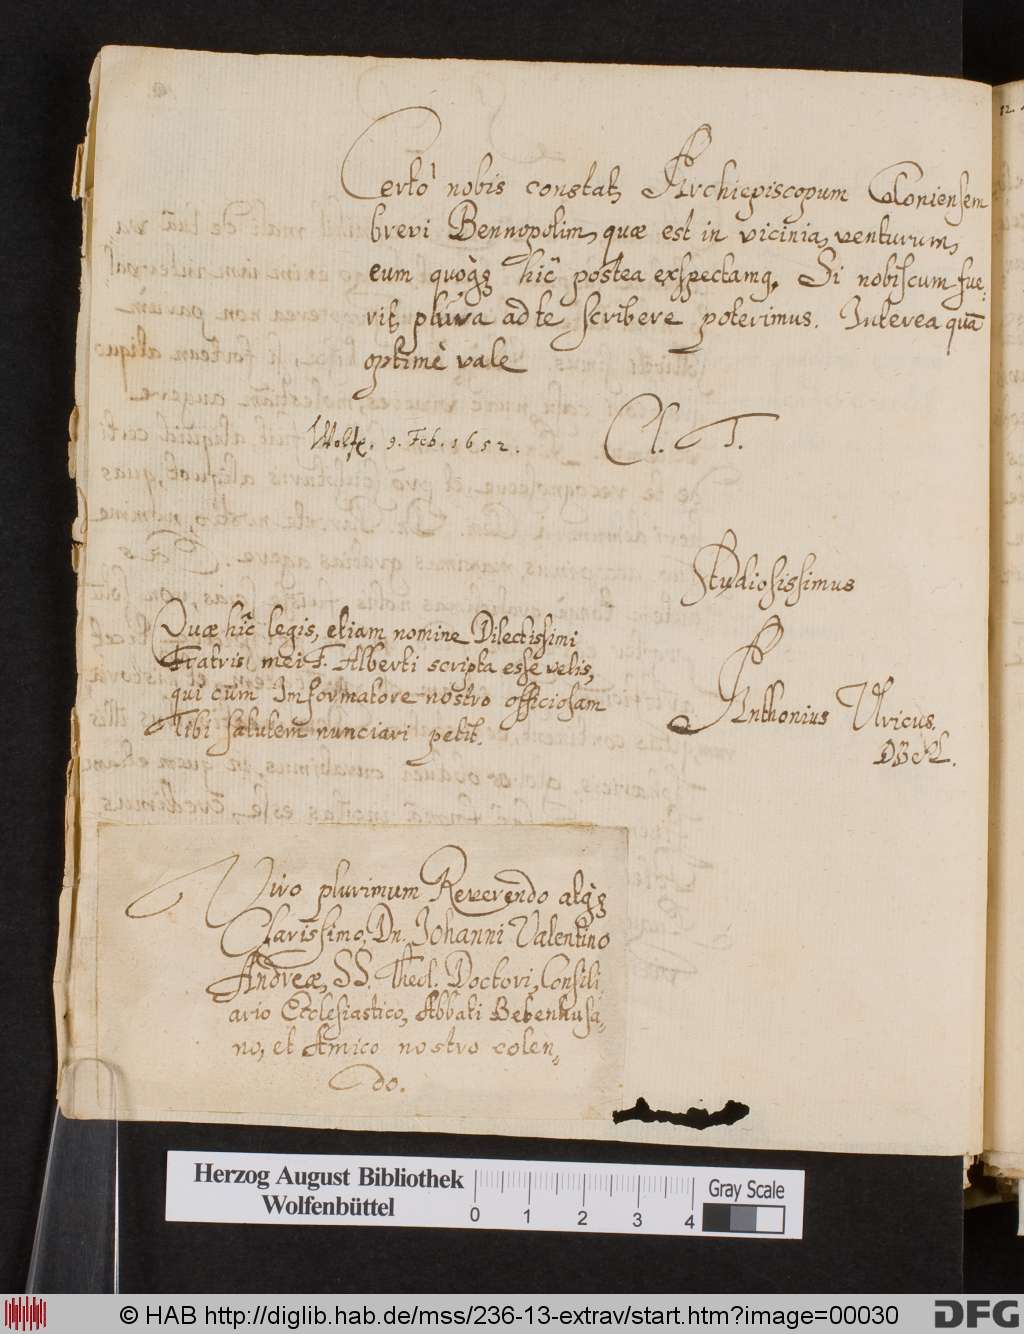 Certò nobis constat, Archiepiscopum Coloniensem
brevi Bennopolim, quæ est in vicinia, venturum,
eum quoq; hîc postea exspectamq. Si nobiscum fue-
rit, plura ad te scribere poterimus. Interea quã
optimè vale
Wolff. 9. Feb. 1652.
Cl. T.
Studiosissimus
Quæ hîc legis, etiam nomine Dilectissimi
Fratris mei F. Alberti scripta esse velis,
qui cum Informatore nostro officiosam
Tibi salutem nunciari petit.
Anthonius Ulricus.
DB&L.
Viro plurimum Reverendo atq;
Clarissimo, Dn. Johanni Valentino
Andreæ, SS. Theol. Doctori, Consili
ario Ecclesiastico, Abbati Bebenhusa-
no, et Amico nostro colen-
do.
Herzog August Bibliothek
Wolfenbüttel
0 1 2 3 4
Gray Scale
© HAB http://diglib.hab.de/mss/236-13-extrav/start.htm?image=00030
DFG